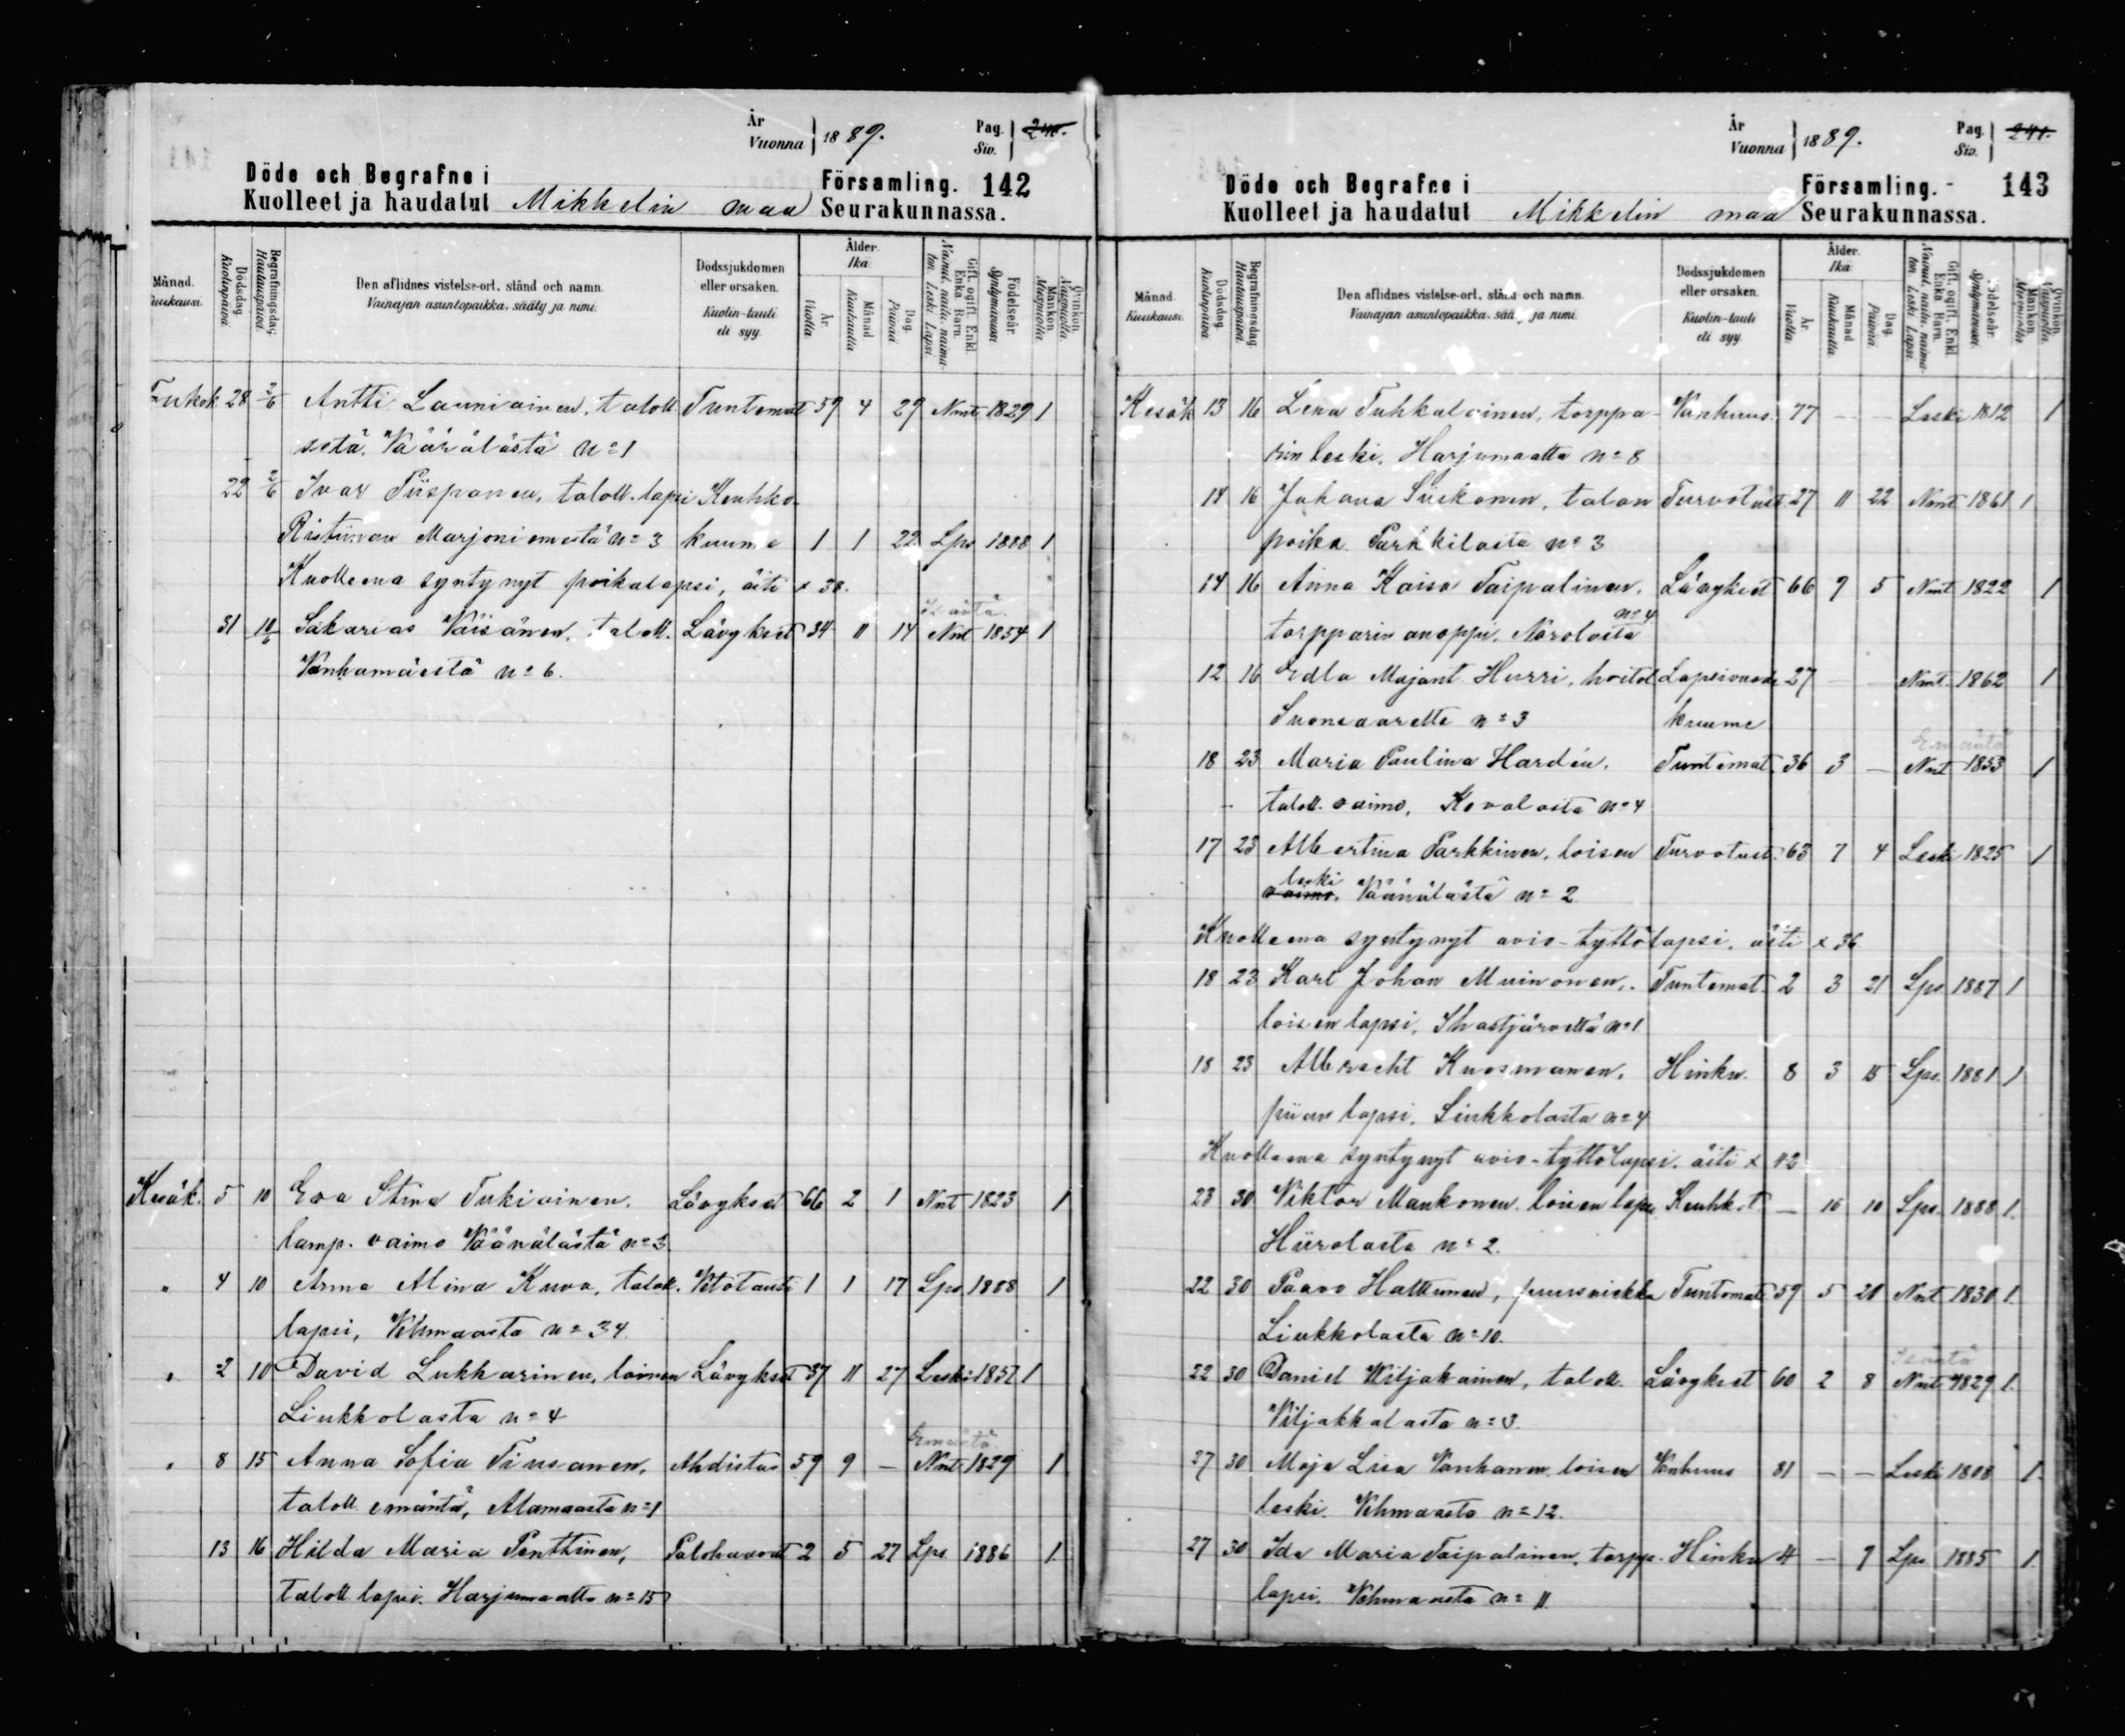 År
Vuonna 1889.
Pag.
Siv. 240.
Döde och Begrafne i Församling. 142
Kuolleet ja haudatut Mikkelin maa Seurakunnassa.
Månad. Kuukausi.
Dödsdag. Kuolinpäivä.
Begrafningsdag. Hautauspäivä.
Den aflidnes vistelse-ort, stånd och namn.
Vainajan asuntopaikka, sääty ja nimi.
Dödssjukdomen eller orsaken.
Kuolin-tauti eli syy.
Ålder. Ikä
År. Vuotta.
Månad Kuukautta
Dag. Päivää
Gift. ogift. Enkl. Enka. Barn.
Nainut. naitu. naimaton. Leski. Lapsi.
Födelseår. Syntymävuosi
Mankön. Miespuolia.
Qvinkön. Vaimopuolia.
Toukok 28 2/6 Antti Launiainen, taloll. Tuntemat 59 4 29 Nmt 1829 1
setä, Väärälästä n=1
22 2/6 Ivar Piispanen, taloll. lapsi Keuhko
Ristiinan Marjoniemestä n=3 kuume 1 1 22 Lps 1888 1
Kuolleena syntynyt poikalapsi, äiti x 38.
Isäntä.
31 10/6 Sakarias Väisänen, taloll. Lävykset 34 11 14 Nnt 1854 1
Vanhamäestä n=6.
Kesäk. 5 10 Eva Stina Tukiainen, Lävykset 66 2 1 Nnt 1823 1
lamp. vaimo Väänälästä n=3
" 4 10 Anna Alina Kuva, taloll. Vetotauti 1 1 17 Lps 1888 1
lapsi, Vehmaasta n=34
" 2 10 David Lukkarinen, loinen Lävykset 37 11 27 Leski 1851 1
Liukkolasta n=4
Emäntä.
" 8 15 Anna Sofia Tiusanen, Ahdistus 59 9 — Nnt 1829 1
taloll. emäntä, Alamaasta n=1
13 16 Hilda Maria Penttinen, Palohaavat 2 5 27 Lps 1886 1
taloll. lapsi. Harjumaalta n=15
År
Vuonna 1889.
Pag.
Siv. 241.
Döde och Begrafne i Församling. 143
Kuolleet ja haudatut Mikkelin maa Seurakunnassa.
Månad. Kuukausi.
Dödsdag. Kuolinpäivä.
Begrafningsdag. Hautauspäivä.
Den aflidnes vistelse-ort, stånd och namn.
Vainajan asuntopaikka, sääty ja nimi.
Dödssjukdomen eller orsaken.
Kuolin-tauti eli syy.
Ålder. Ikä
År. Vuotta.
Månad Kuukautta.
Dag. Päivää.
Gift. ogift. Enkl. Enka. Barn.
Nainut. naitu. naimaton. Leski. Lapsi.
Födelseår. Syntymävuosi.
Mankön. Miespuolia
Qvinkön. Vaimopuolia.
Kesäk 13 16 Lena Tuhkalainen, torppa- Vanhuus. 77 — — Leski 1812 1
rin leski. Harjumaalta n=8
14 16 Juhana Siiskonen, talon Turvotust 27 11 22 Nmt 1861 1
poika. Parkkilasta n=3
14 16 Anna Kaisa Taipalinen, Lävykset 66 9 5 Nmt 1822 1
torpparin anoppi, Norolasta n=4
12 16 Edla Majant. Hurri, hoitol. Lapsivuode 27 — — Nmt. 1862 1
Suonsaarelta n=3 kuume
Emäntä
18 23 Maria Paulina Hardén, Tuntemat. 36 3 — Nnt 1853 1
taloll. vaimo, Kovalasta n=4
17 23 Albertina Parkkinen, loisen Turvotust. 63 7 4 Leski 1825 1
vaimo. leski Väänälästä n=2
Kuolleena syntynyt avio-tyttölapsi. äiti x 36
18 23 Karl Johan Muinonen, Tuntemat. 2 3 21 Lps 1887 1
loisen lapsi, Ihastjärveltä n=1
18 23 Albrecht Kuosmanen, Hinku. 8 3 15 Lps. 1881 1
piian lapsi. Liukkolasta n=4
Kuolleena syntynyt avio-tyttölapsi. äiti x 42
23 30 Viktor Maukonen. loisen lapsi Keuhk.t — 10 10 Lps. 1888 1.
Hiirolasta n=2.
22 30 Paavo Hattunen, Tuntemat. 59 5 20 Nnt 1830 1.
Liukkolasta n=10.
Isäntä
22 30 Daniel Wiljakainen, taloll. Lävykset 60 2 8 Nnt 1829 1.
Viljakkalasta n=3.
27 30 Maja Lisa Vanhanen, loisen Vanhuus 81 — — Leski 1808 1.
leski. Vehmaasta n=12.
27 30 Ida Maria Taipalinen, torpp. Hinku 4 — 7 Lps 1885 1.
lapsi. Vehmaasta n=11